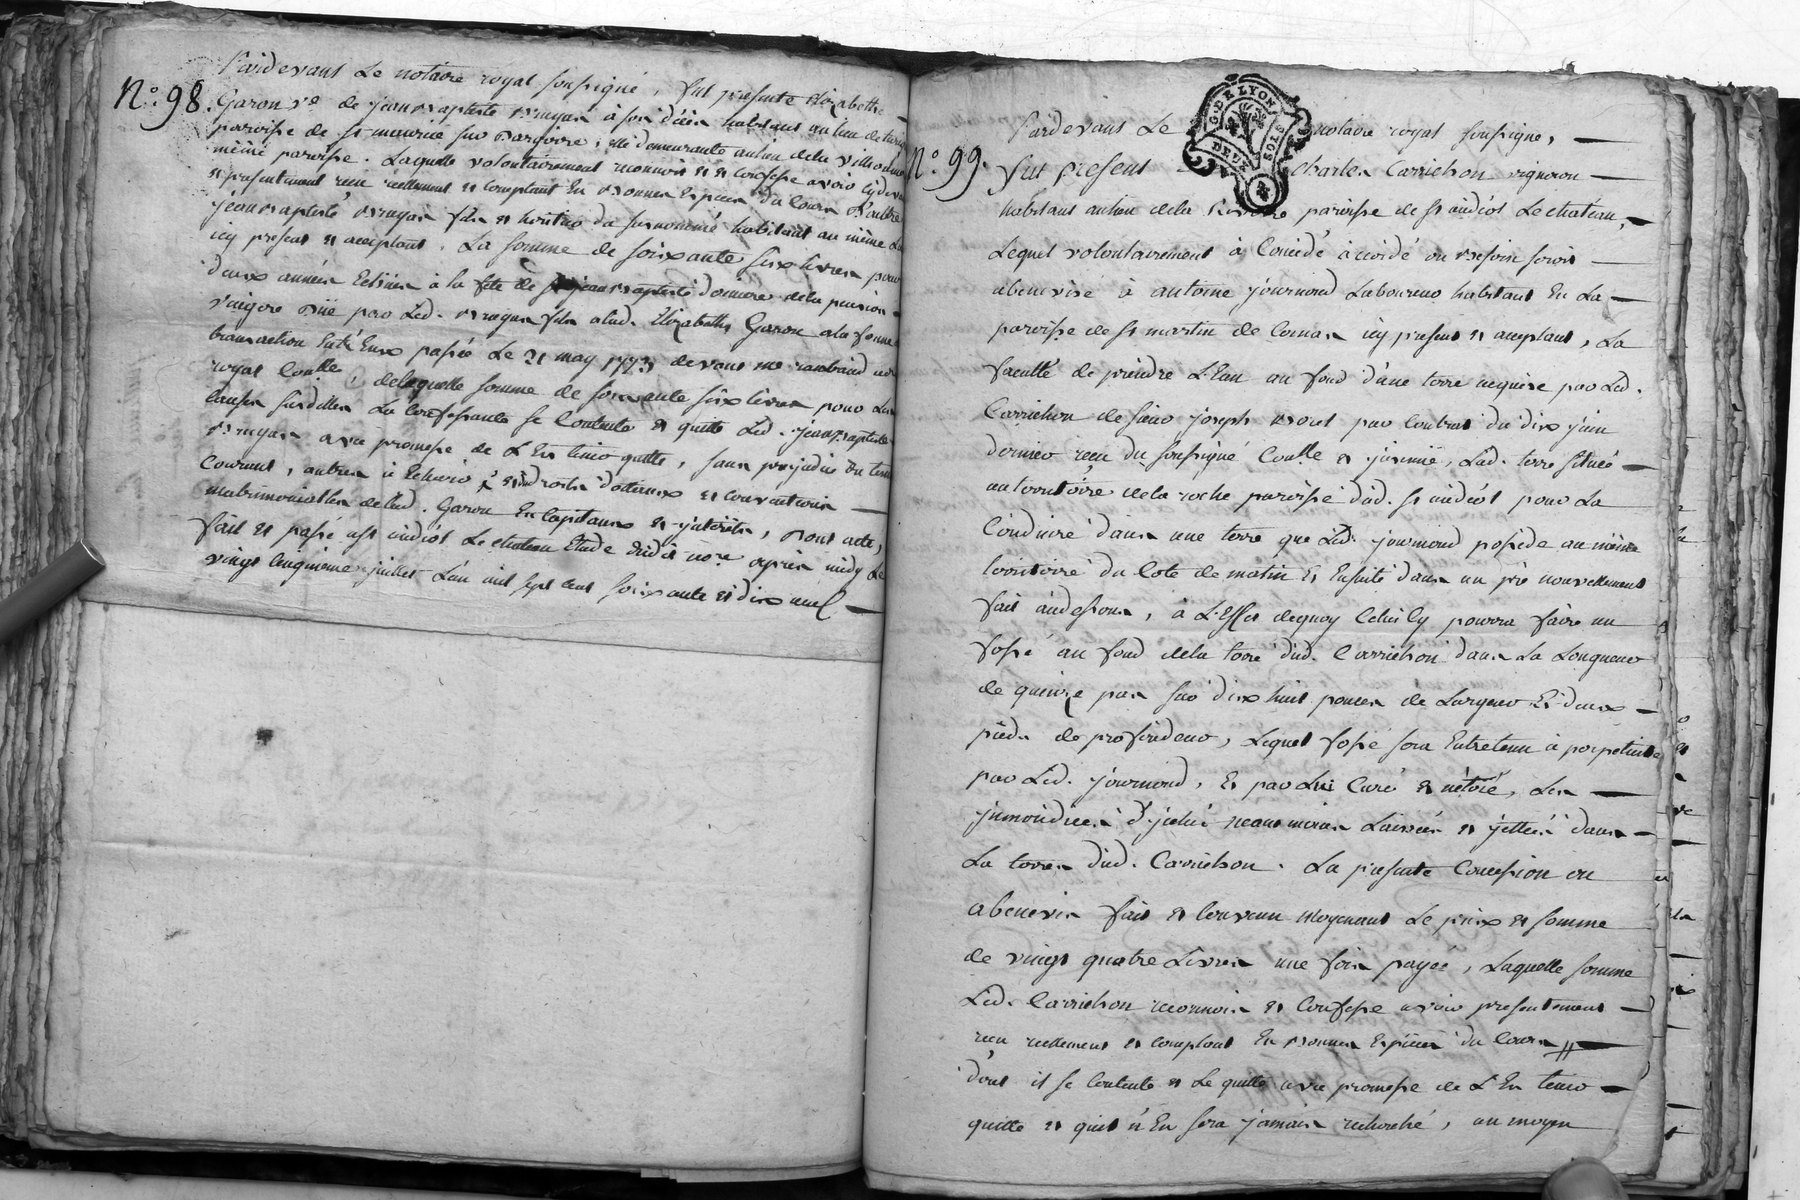 N.° 98.
Pardevant Le notaire royal soussigné, fut presente Elizabeth
Garon v.e de jean Baptiste Bruyas à son déces habitant au lieu de
paroisse de st maurice sur Dargoire, elle demeurante au lieu dela
même paroisse. Laquelle volontairement reconnoit et confesse avoir cy devant
et presentement reçu réellement et comptant En bonnes Especes du Cours D'autre
jean Baptiste Bruyas fils et heritier du susnommé habitant au même Lieu
icy present et acceptant. La somme de soixante six livres pour
deux années Echües à la fête de st jean Baptiste derniere dela pension
viagere Düe par Led. Bruyas fils alad. Elizabeth Garon ala forme
transaction Entr'Eux passée Le 21 may 1773 devant me
royal Coulle, delaquelle somme de soixante six livres pour Les
causes susdittes La Confessante se Contente et quitte Led. jean Baptiste
Bruyas avec promesse de L'En tenir quitte, sans prejudice du terme
Courant, autres à Echeoir, et droits dotaux et Conventions
matrimonialles delad. Garon En Capitaux et jnterêts, Dont acte,
fait et passé a st andéol Le chateau Etude Dud. not.re après midy Le
vingt Cinquieme juillet L'an mil sept cent soixante et dix neuf
G. DE LYON
DEUX SOLS
N.° 99.
Pardevant Le notaire royal soussigné,
fut present Charles Carrichon vigneron
habitant au lieu dela paroisse de st andéol Le chateau,
Lequel volontairement à Concédé accordé ou
abenevisé à antoine journoud Laboureur habitant En La
paroisse de st martin de Cornas icy present et acceptant, La
faculté de prendre L'Eau au fond d'une terre acquise par Led.
Carrichon de sieur joseph par Contrat du dix juin
dernier reçu du soussigné Coulle et jnsinué, Lad. terre située
au territoire dela roche paroisse dud. st andéol pour La
Conduire dans une terre que Led. journoud possede au même
territoire du Coté de matin Et Ensuite dans un pré nouvellement
fait audessous, à L'Effet dequoy Celui Cy pourra faire un
fossé au fond dela terre dud. Carrichon dans La Longueur
de quinze pas sur dix huit pouces de Largeur Et deux
pieds de profondeur, Lequel fossé sera Entretenu à perpetuité
par Led. journoud, Et par Lui Curé et nétoié, Les
jmondices d'jcelui neanmoins Laissées et jettées dans
La terre dud. Carrichon. La presente Concession ou
abenevis fait et Convenu moyenant Le prix et somme
de vingt quatre Livres une fois payée, Laquelle somme
Led. Carrichon reconnoit et Confesse avoir presentement
reçu reellement et comptant En bonnes Espèces du Cours
dont il se Contente et Le quitte avec promesse de L'En tenir
quitte et qu'il n'En sera jamais recherché, au moyen